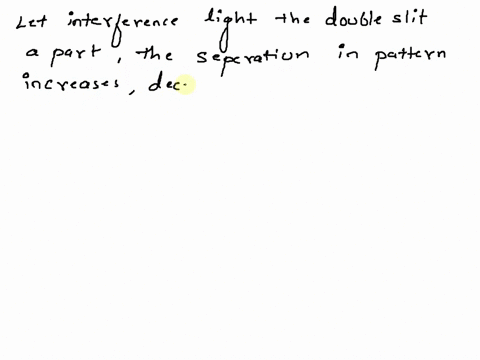 Let interference light the double slit
a part, the seperation in pattern
increases, dec